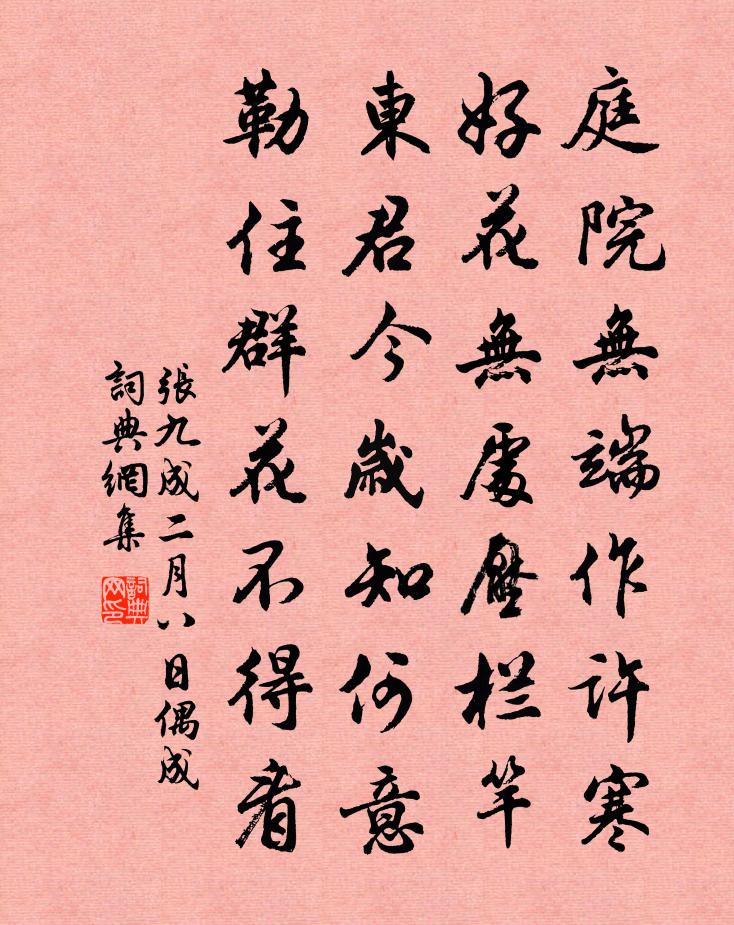 庭院無端作許寒
好花無處壓栏竿
東君今歲知何意
勒住群花不得看
張九成二月八日偶成
詞典網集
詞典网印